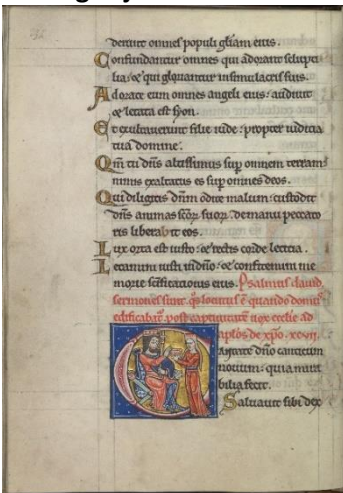 derunt omnes populi gliam eius.
Confundantur omnes qui adorant sculpti
lia: & qui gloriantur in simulacris suis.
Adorate eum omnes angeli eius: audiuit
& letata est syon.
Et exultauerunt filie iude: propter iudicia
tua domine.
Qm tu dns altissimus sup omnem terram:
nimis exaltatus es sup omnes deos.
Qui diligitis dnm odite malum: custodit
dns animas scōr suor, de manu peccato
ris liberabit eos.
Lux orta est iusto: & rectis corde leticia.
Letamini iusti in dno: & confitemini me
morie scificationis eius. Psalmus dauid
sermones sunt. qs locutus ē quando domus
edificabat. post captiuitatem
aplos de xpo. xcvii.
antate dno canticum
nouum: quia mira
bilia fecit.
Saluauit sibi dex